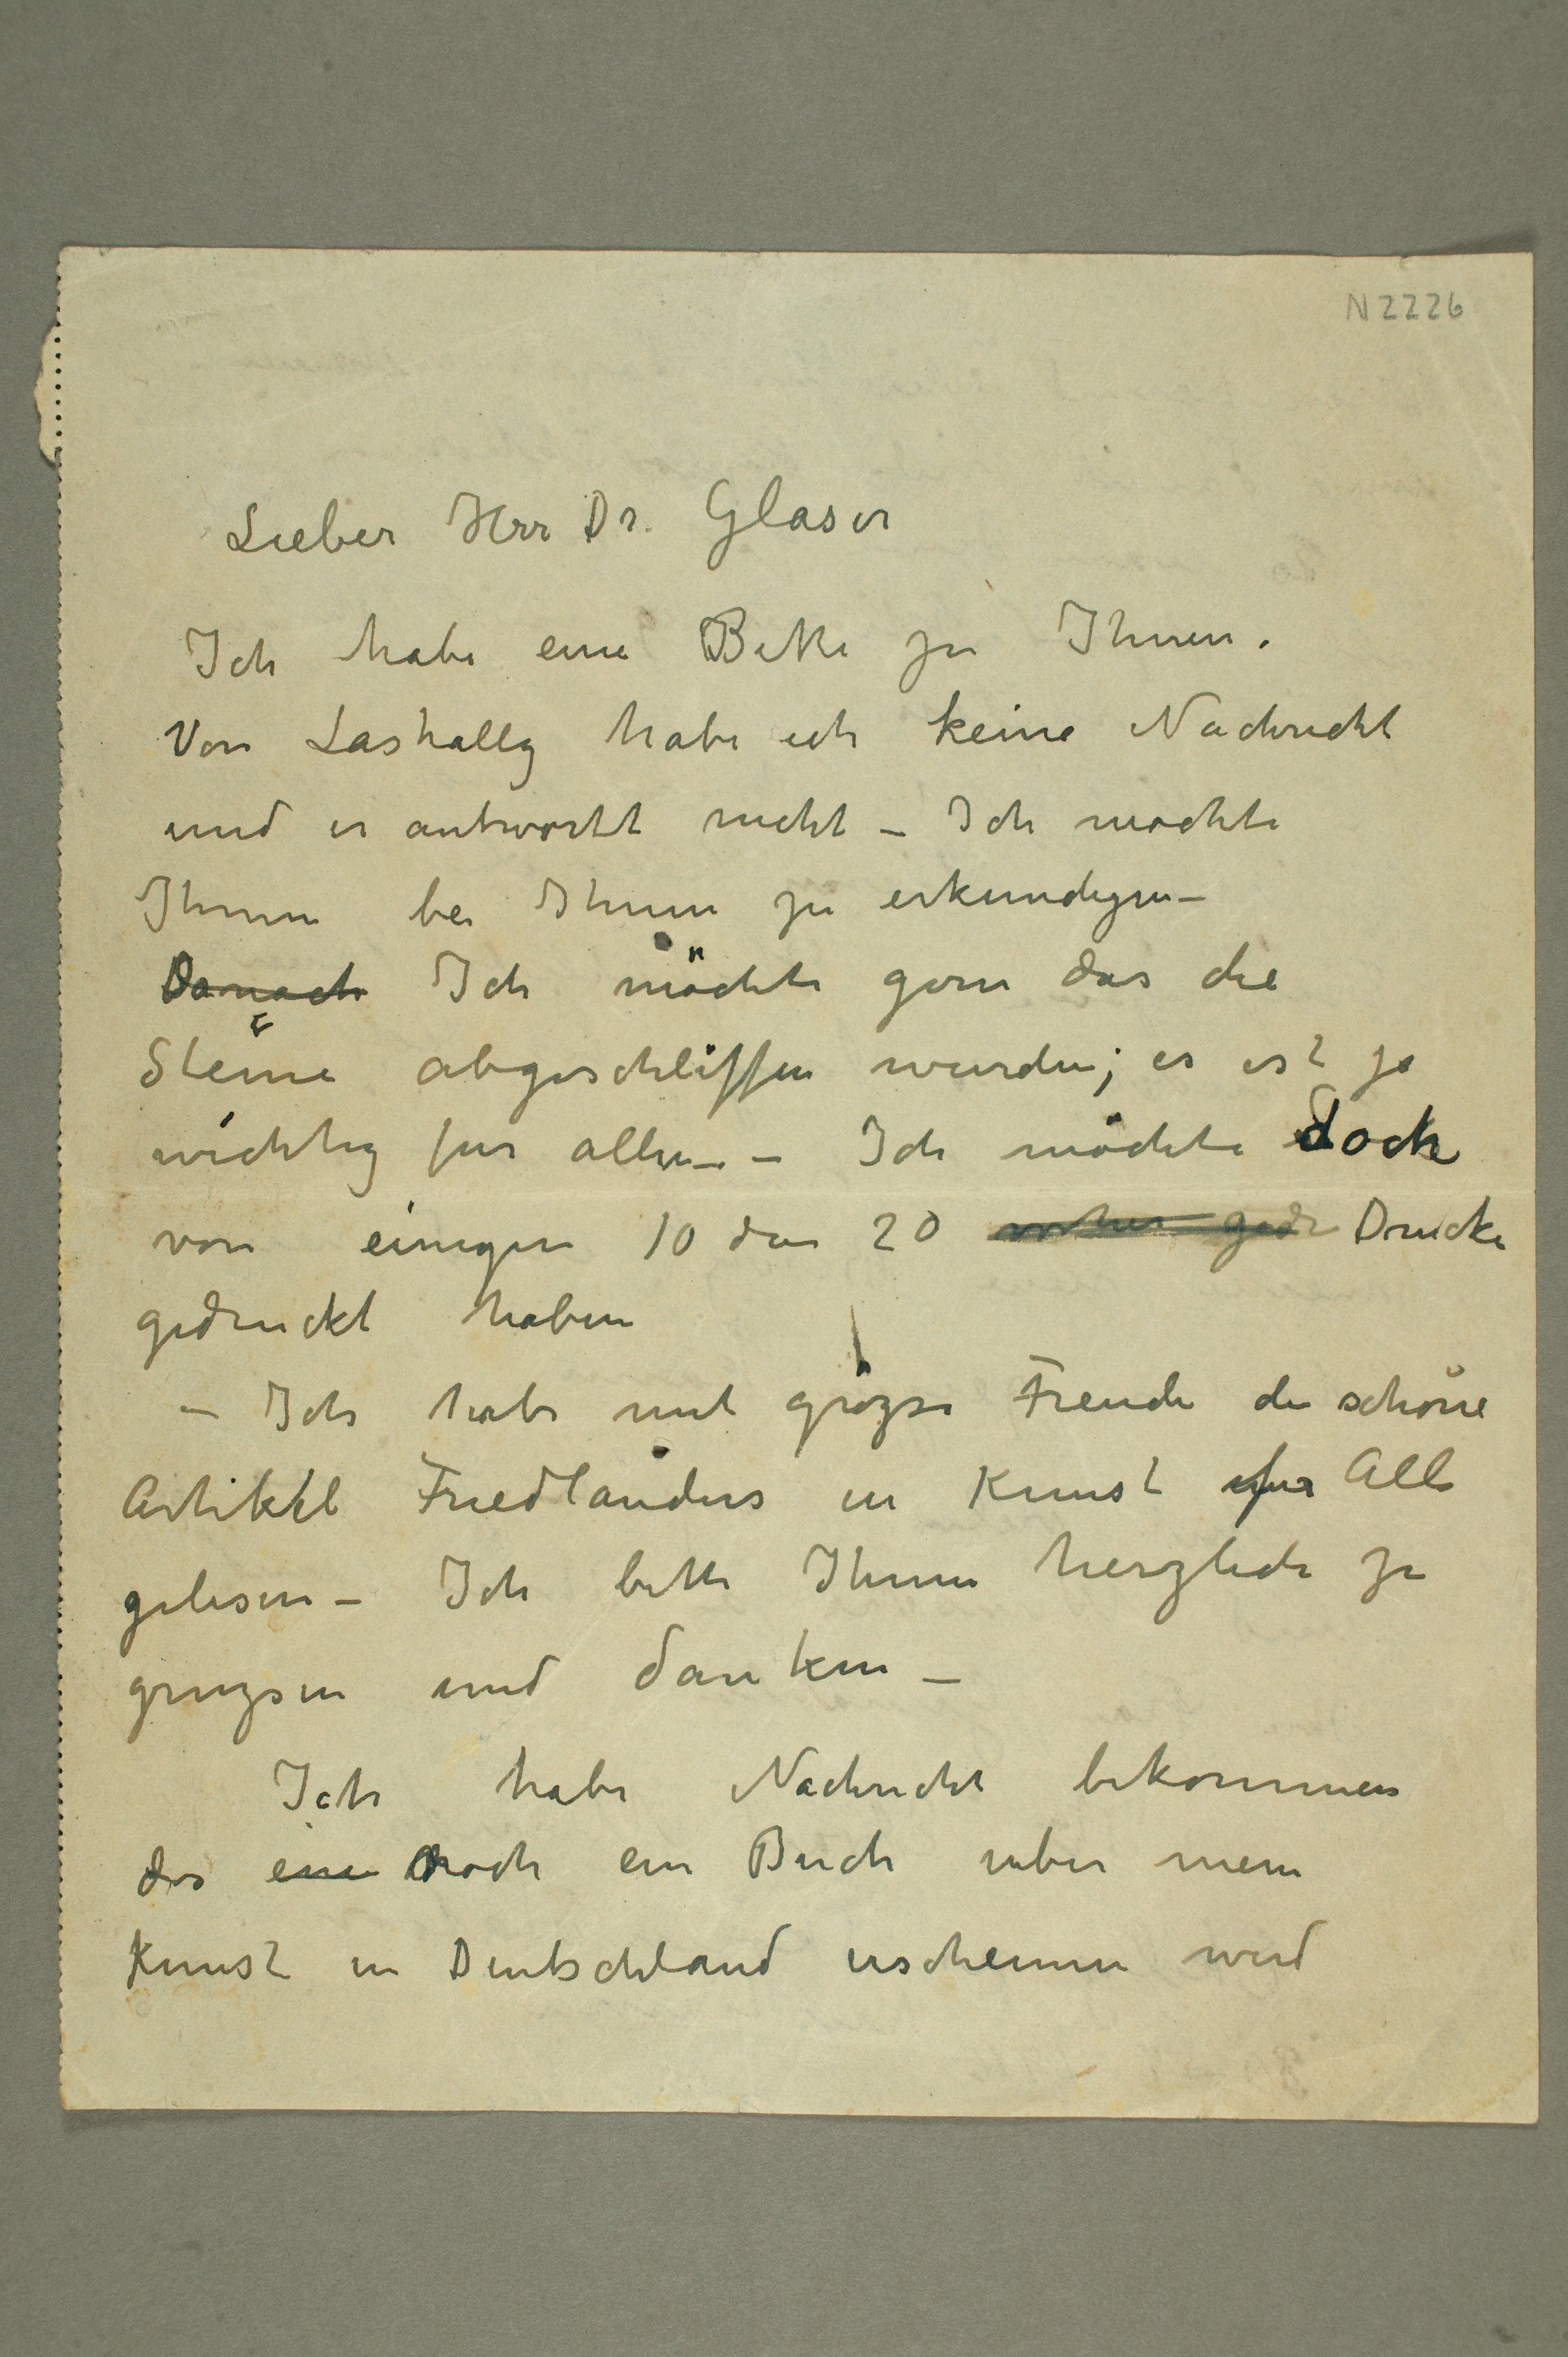 N 2226
Lieber Herr Dr. Glaser
Ich habe eine Bitte zu Ihnen.
Von Laskally habe ich keine Nachricht
und er antwortet nicht – Ich mochte
Ihnen bei Ihnen zu erkundigen –
Danach Ich möchte gern das die
Steine abgeschliffen wurden; es ist ja
wichtig fur allen – – Ich möchte doch
von einigen 10 dan 20 Drucke
gedruckt haben
– Ich habe mit grozse Freude die schöne
Artikkel Friedländers in Kunst fur Alle
gelesen – Ich bitte Ihnen herzlich zu
gruzsen und danken –
Ich habe Nachricht bekommen
das eine noch ein Buch uber mein
Kunst in Deutschland erscheinen wird